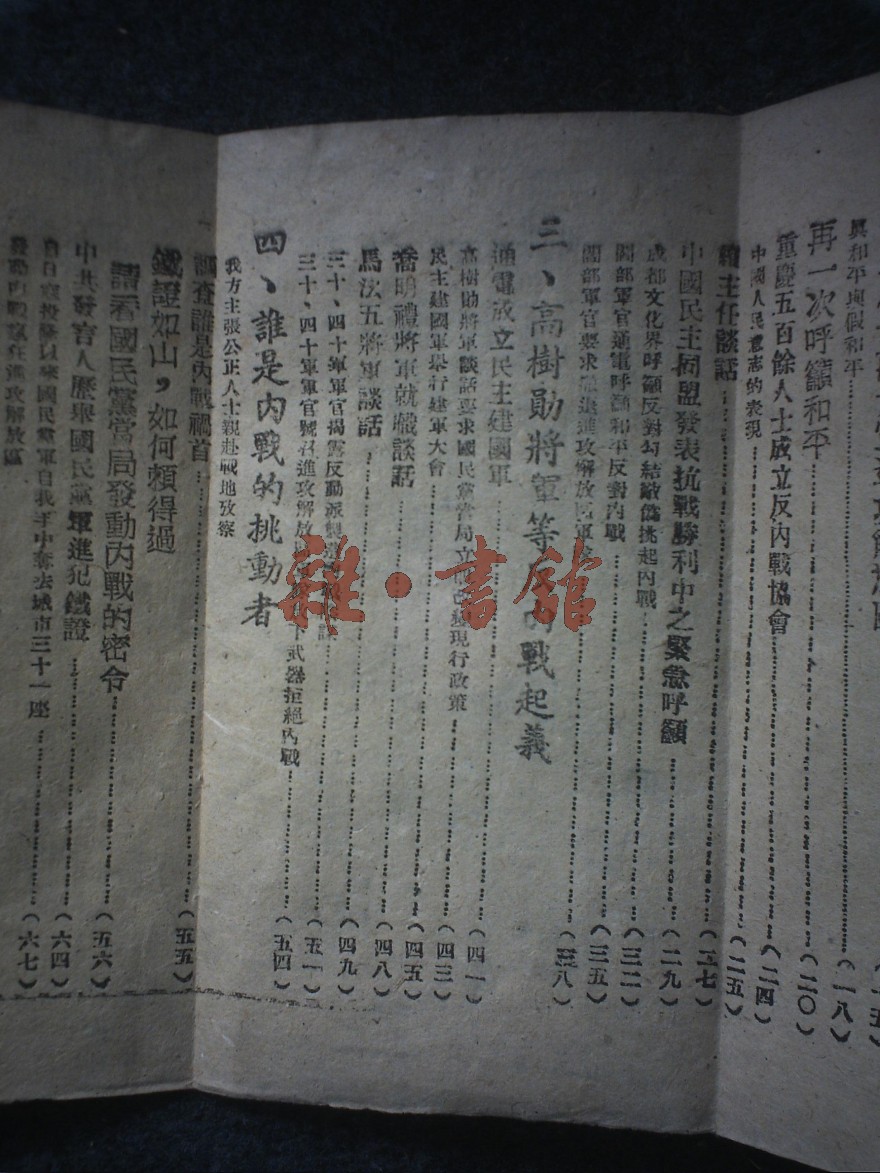 真和平與假和平……（一八）
再一次呼籲和平……（二〇）
重慶五百餘人士成立反內戰協會……（二四）
中國人民意志的表現……（二五）
主任談話……（二七）
中國民主同盟發表抗戰勝利中之緊急呼籲……（二九）
成都文化界呼籲反對勾結敵偽挑起內戰……（三二）
閻部軍官通電呼籲和平反對內戰……（三五）
閻部軍官要求 退進攻解放區軍……（三八）
三、高樹勛將軍等 內戰起義
通電成立民主建國軍……（四一）
高樹勛將軍談話要求國民黨當局立 現行政策……（四三）
民主建國軍舉行建軍大會……（四五）
喬明禮將軍就職談話……（四八）
馬法五將軍談話……（四九）
三十、四十軍軍官揭露反動派製造……（五一）
三十、四十軍軍官號召進攻解放 下武器拒絕內戰……（五四）
四、誰是內戰的挑動者
我方主張公正人士親赴戰地攷察
調查誰是內戰禍首……（五五）
鐵證如山，如何賴得過
請看國民黨當局發動內戰的密令……（五六）
中共發言人歷舉國民黨軍進犯鐵證……（六四）
自日寇投降以來國民黨軍自我手中奪去城市三十一座……（六七）
發動內戰 在進攻解放區
雜·書館